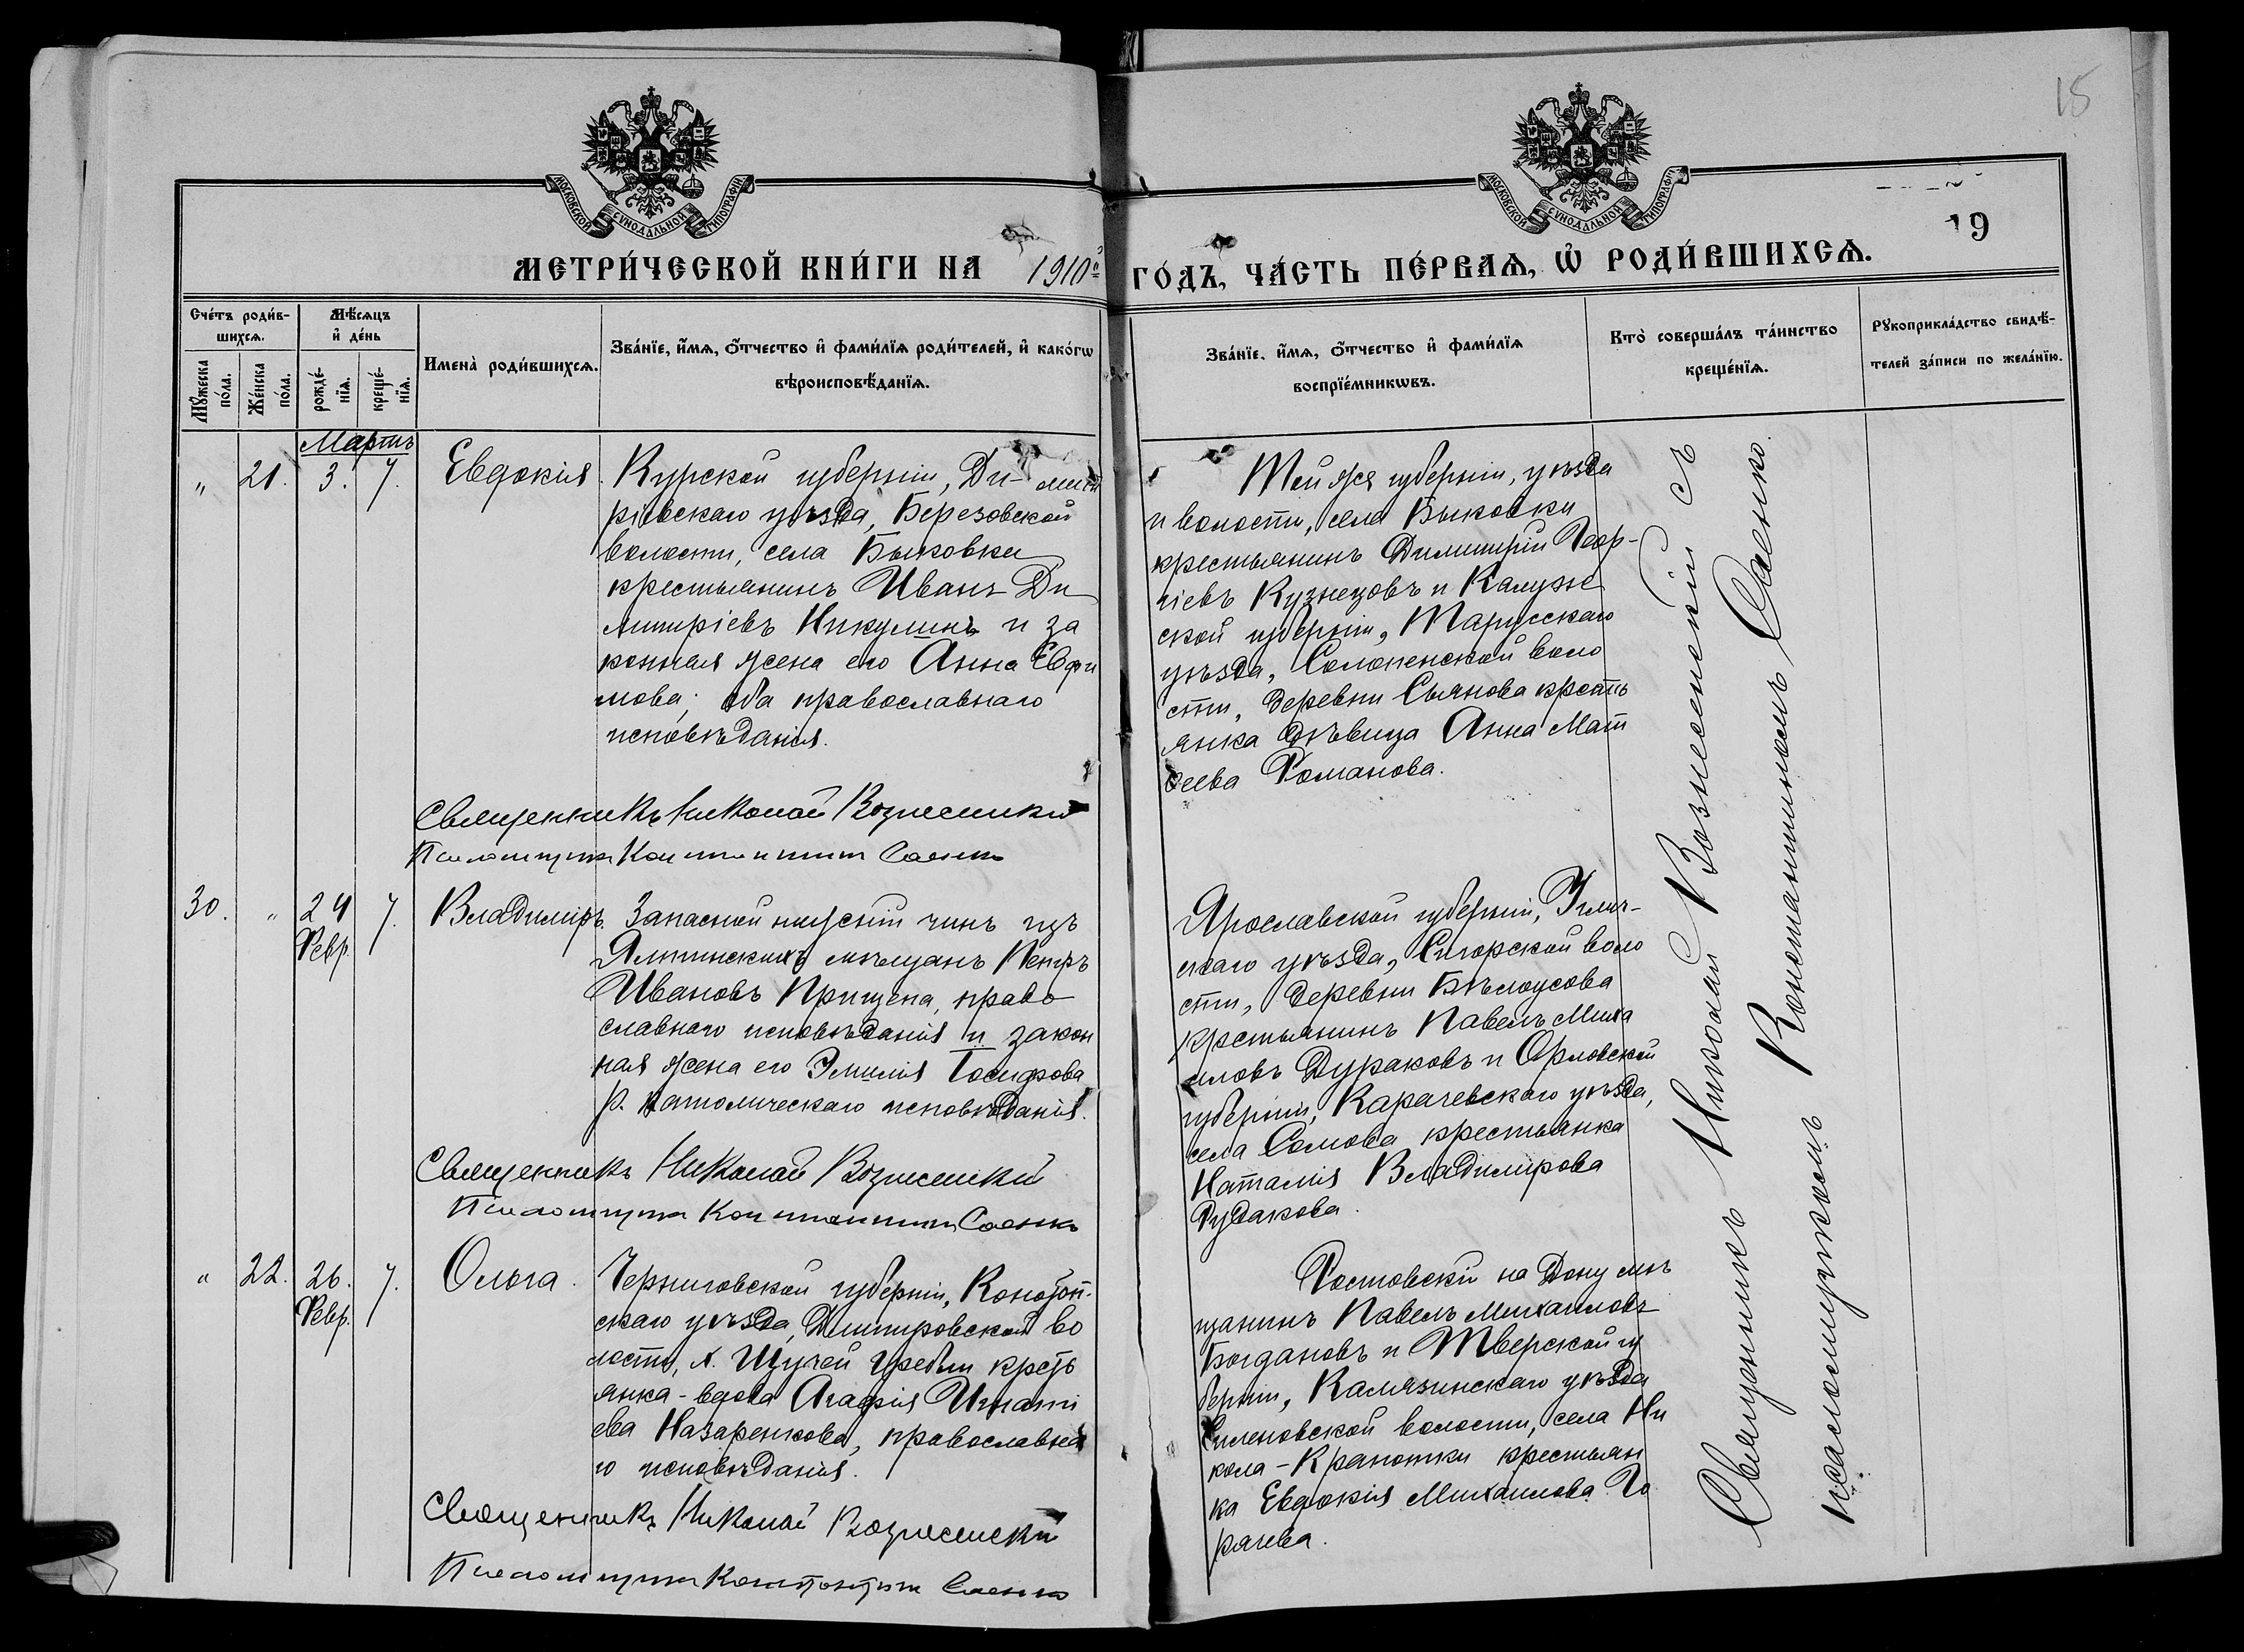 15
МОСКОВСКОЙ СѴНОДАЛЬНОЙ ТИПОГРАФІИ
МОСКОВСКОЙ СѴНОДАЛЬНОЙ ТИПОГРАФІИ
19
МЕТРИ́ЧЕСКОЙ КНИ́ГИ НА 1910й ГО́ДЪ, ЧА́СТЬ ПЕ́РВАѦ, Ѡ҆ РОДИ́ВШИХСѦ.
Сче́тъ роди́в-
шихсѧ.
Мꙋ́жеска по́ла.
Же́нска по́ла.
Мѣ́сѧцъ
и҆ де́нь
рожде́-
нїѧ.
креще́-
нїѧ.
Имена̀ роди́вшихсѧ.
Зва́нїе, и҆́мѧ, ѻ҆́тчество и҆ фами́лїѧ роди́телей, и҆ како́гѡ
вѣроисповѣ́данїѧ.
Зва́нїе, и҆́мѧ, ѻ҆́тчество и҆ фами́лїѧ
воспрїе́мникѡвъ.
Кто̀ соверша́лъ та́инство
креще́нїѧ.
Рꙋкоприкла́дство свидѣ́-
телей за́писи по жела́нїю.
Мартъ
„ 21. 3. 7. Евдокія.
Курской губерніи, Ди-мит
ріевскаго уѣзда, Березовской
волости, села Быковки
крестьянинъ Иванъ Ди
митріевъ Никулинъ и за
конная жена его Анна Евфи
мова; оба православнаго
исповѣданія.
Священникъ Николай Вознесенскій
Псаломщикъ Константинъ Саенко
Той же губерніи, уѣзда
и волости, села Быковки
крестьянинъ Димитрій Геор-
гіевъ Кузнецовъ и Калуж
ской губерніи, Тарусскаго
уѣзда, Солопенской воло
сти, деревни Сьянова крестъ
янка дѣвица Анна Мат
ѳеева Романова.
30. „ 24 7. Владиміръ.
Февр.
Запасной нижній чинъ изъ
Ялтинскихъ мѣщанъ Петръ
Ивановъ Прищепа, право
славнаго исповѣданія и закон
ная жена его Эмилія Іосифова
р. католическаго исповѣданія.
Священникъ Николай Вознесенскій
Псаломщикъ Константинъ Саенко
Ярославской губерніи, Углич-
скаго уѣзда, Сигорской воло
сти, деревни Бѣлоусова
крестьянинъ Павелъ Миха
иловъ Дураковъ и Орловской
губерніи, Карачевскаго уѣзда,
села Сомова крестьянка
Наталія Владимірова
Рудакова.
„ 22. 26. 7. Ольга.
Февр.
Черниговской губерніи, Конотоп-
скаго уѣзда, Дмитровской во
лости, х. Щучей Гребли крестъ
янка-вдова Агафія Игнати
ева Назаренкова, православна
го исповѣданія.
Священникъ Николай Вознесенскій
Псаломщикъ Константинъ Саенко
Ростовскій на Дону мѣ
щанинъ Павелъ Михаиловъ
Богдановъ и Тверской гу
берніи, Калязинскаго уѣзда
волости, села Ни
кола-Кранотки крестьян
ка Евдокія Михаилова Го
рячева.
Священникъ Николай Вознесенскій съ
псаломщикомъ Константиномъ Саенко.